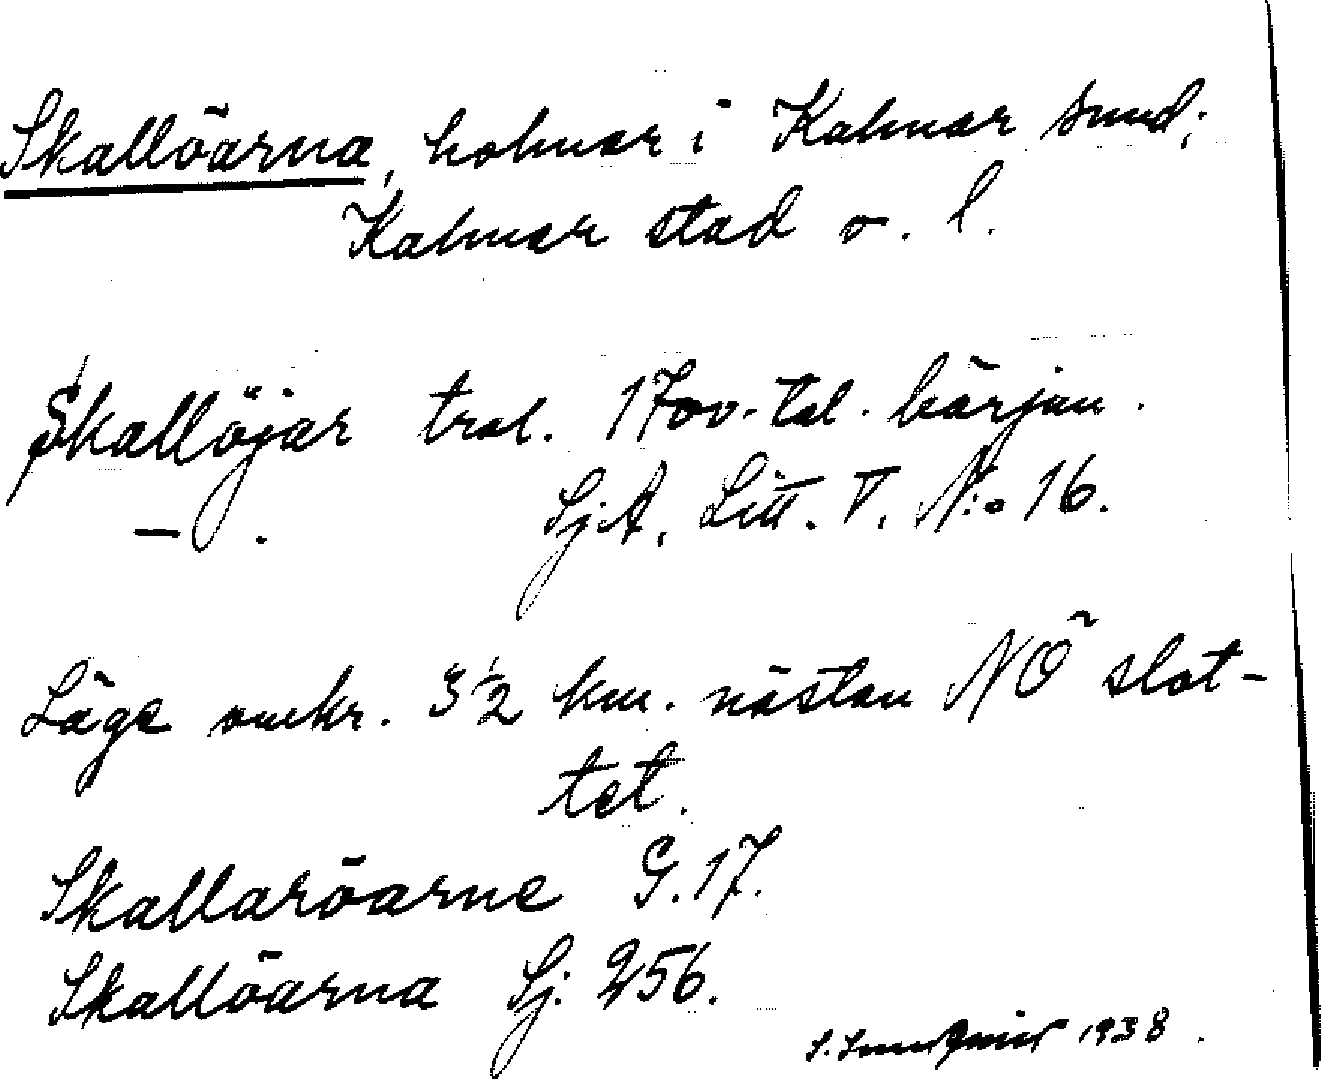 Skallöarna, holmar i Kalmar sund;
Kalmar stad o. l.
Skallöjar trol. 1700-tal. börjau.
— .
SjA, Litt. V. N:o 16.
Läge omkr. 3 1/2 km. nästan NÖ slot-
tet.
Skallaröarne G. 17.
Skallöarna Sj. 256.
1938.